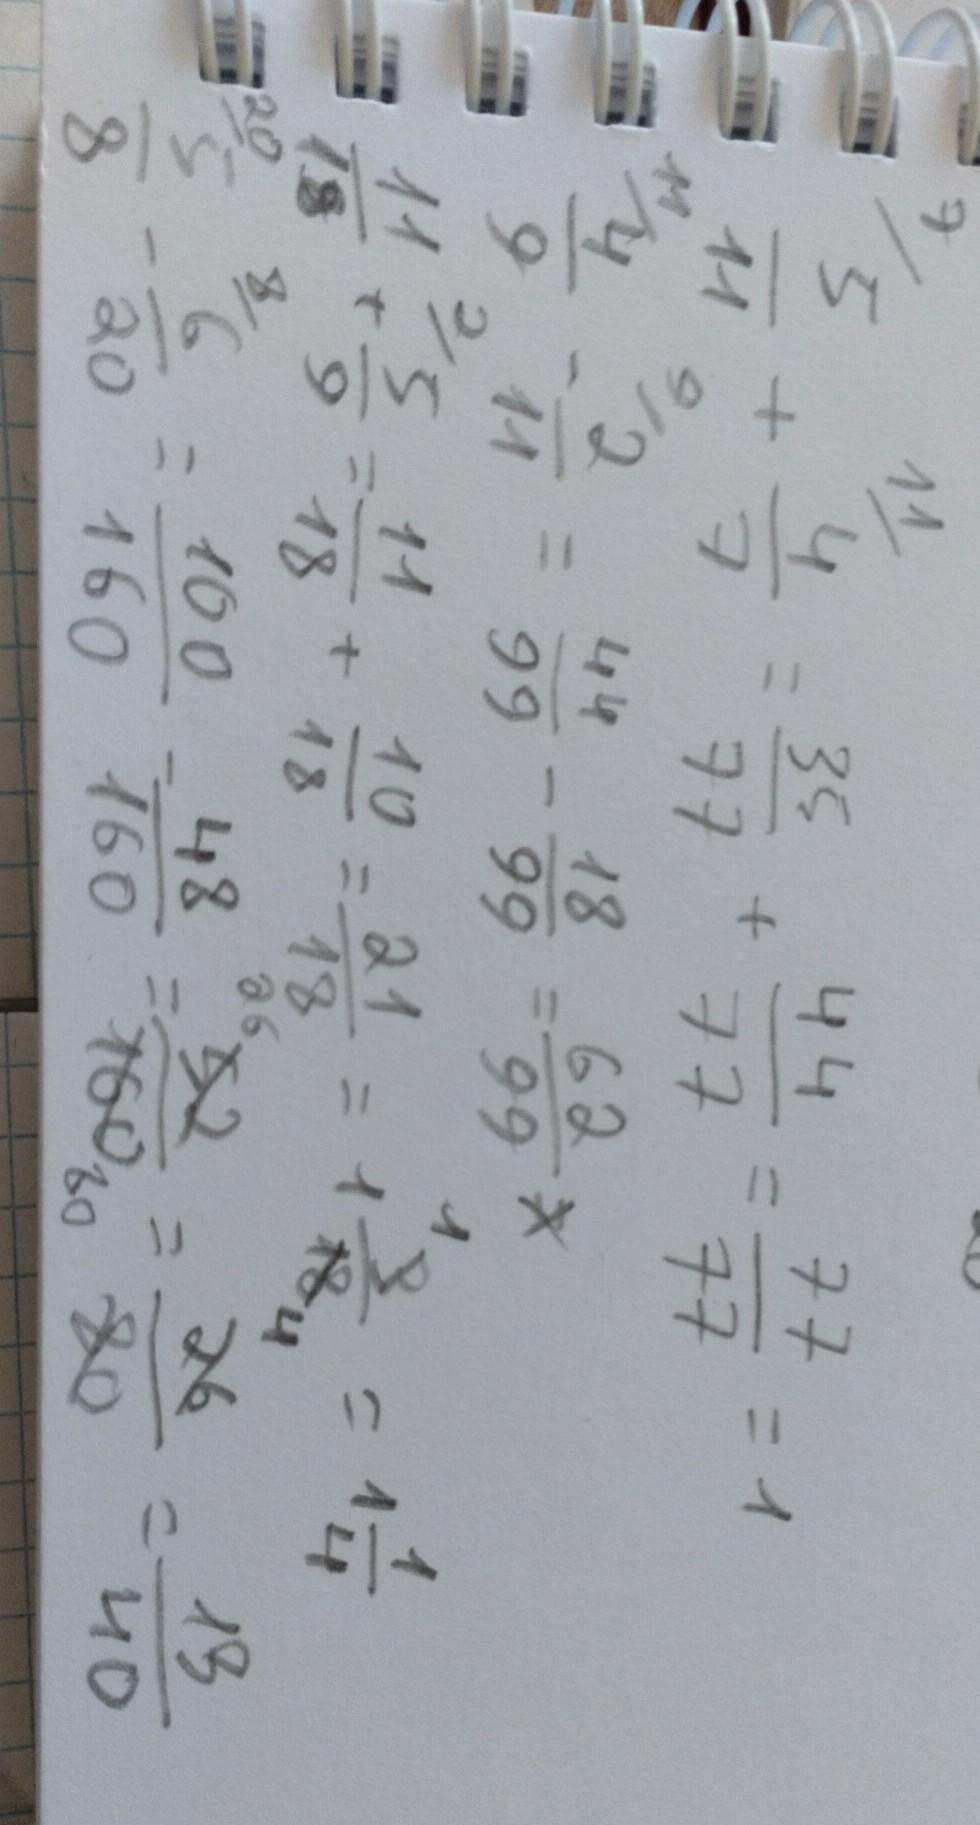 7/ 5/11 + 11/ 4/7 = 35/77 + 44/77 = 77/77 = 1
11/ 4/9 - 9/ 2/11 = 44/99 - 18/99 = 62/99 x
11/18 + 2/ 5/9 = 11/18 + 10/18 = 21/18 = 1 3/18 1 4 = 1 1/4
20/ 5/8 - 8/ 6/20 = 100/160 - 48/160 = 52/160 26 80 = 26/80 = 13/40